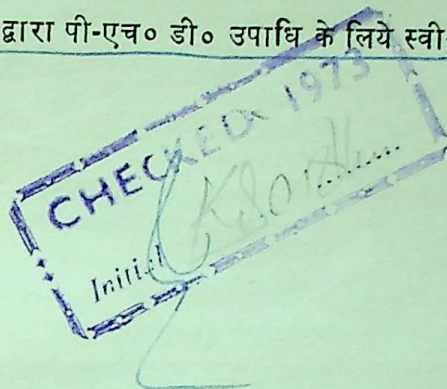 द्वारा पी-एच० डी० उपाधि के लिये स्वी
CHECKED 1973
Initial